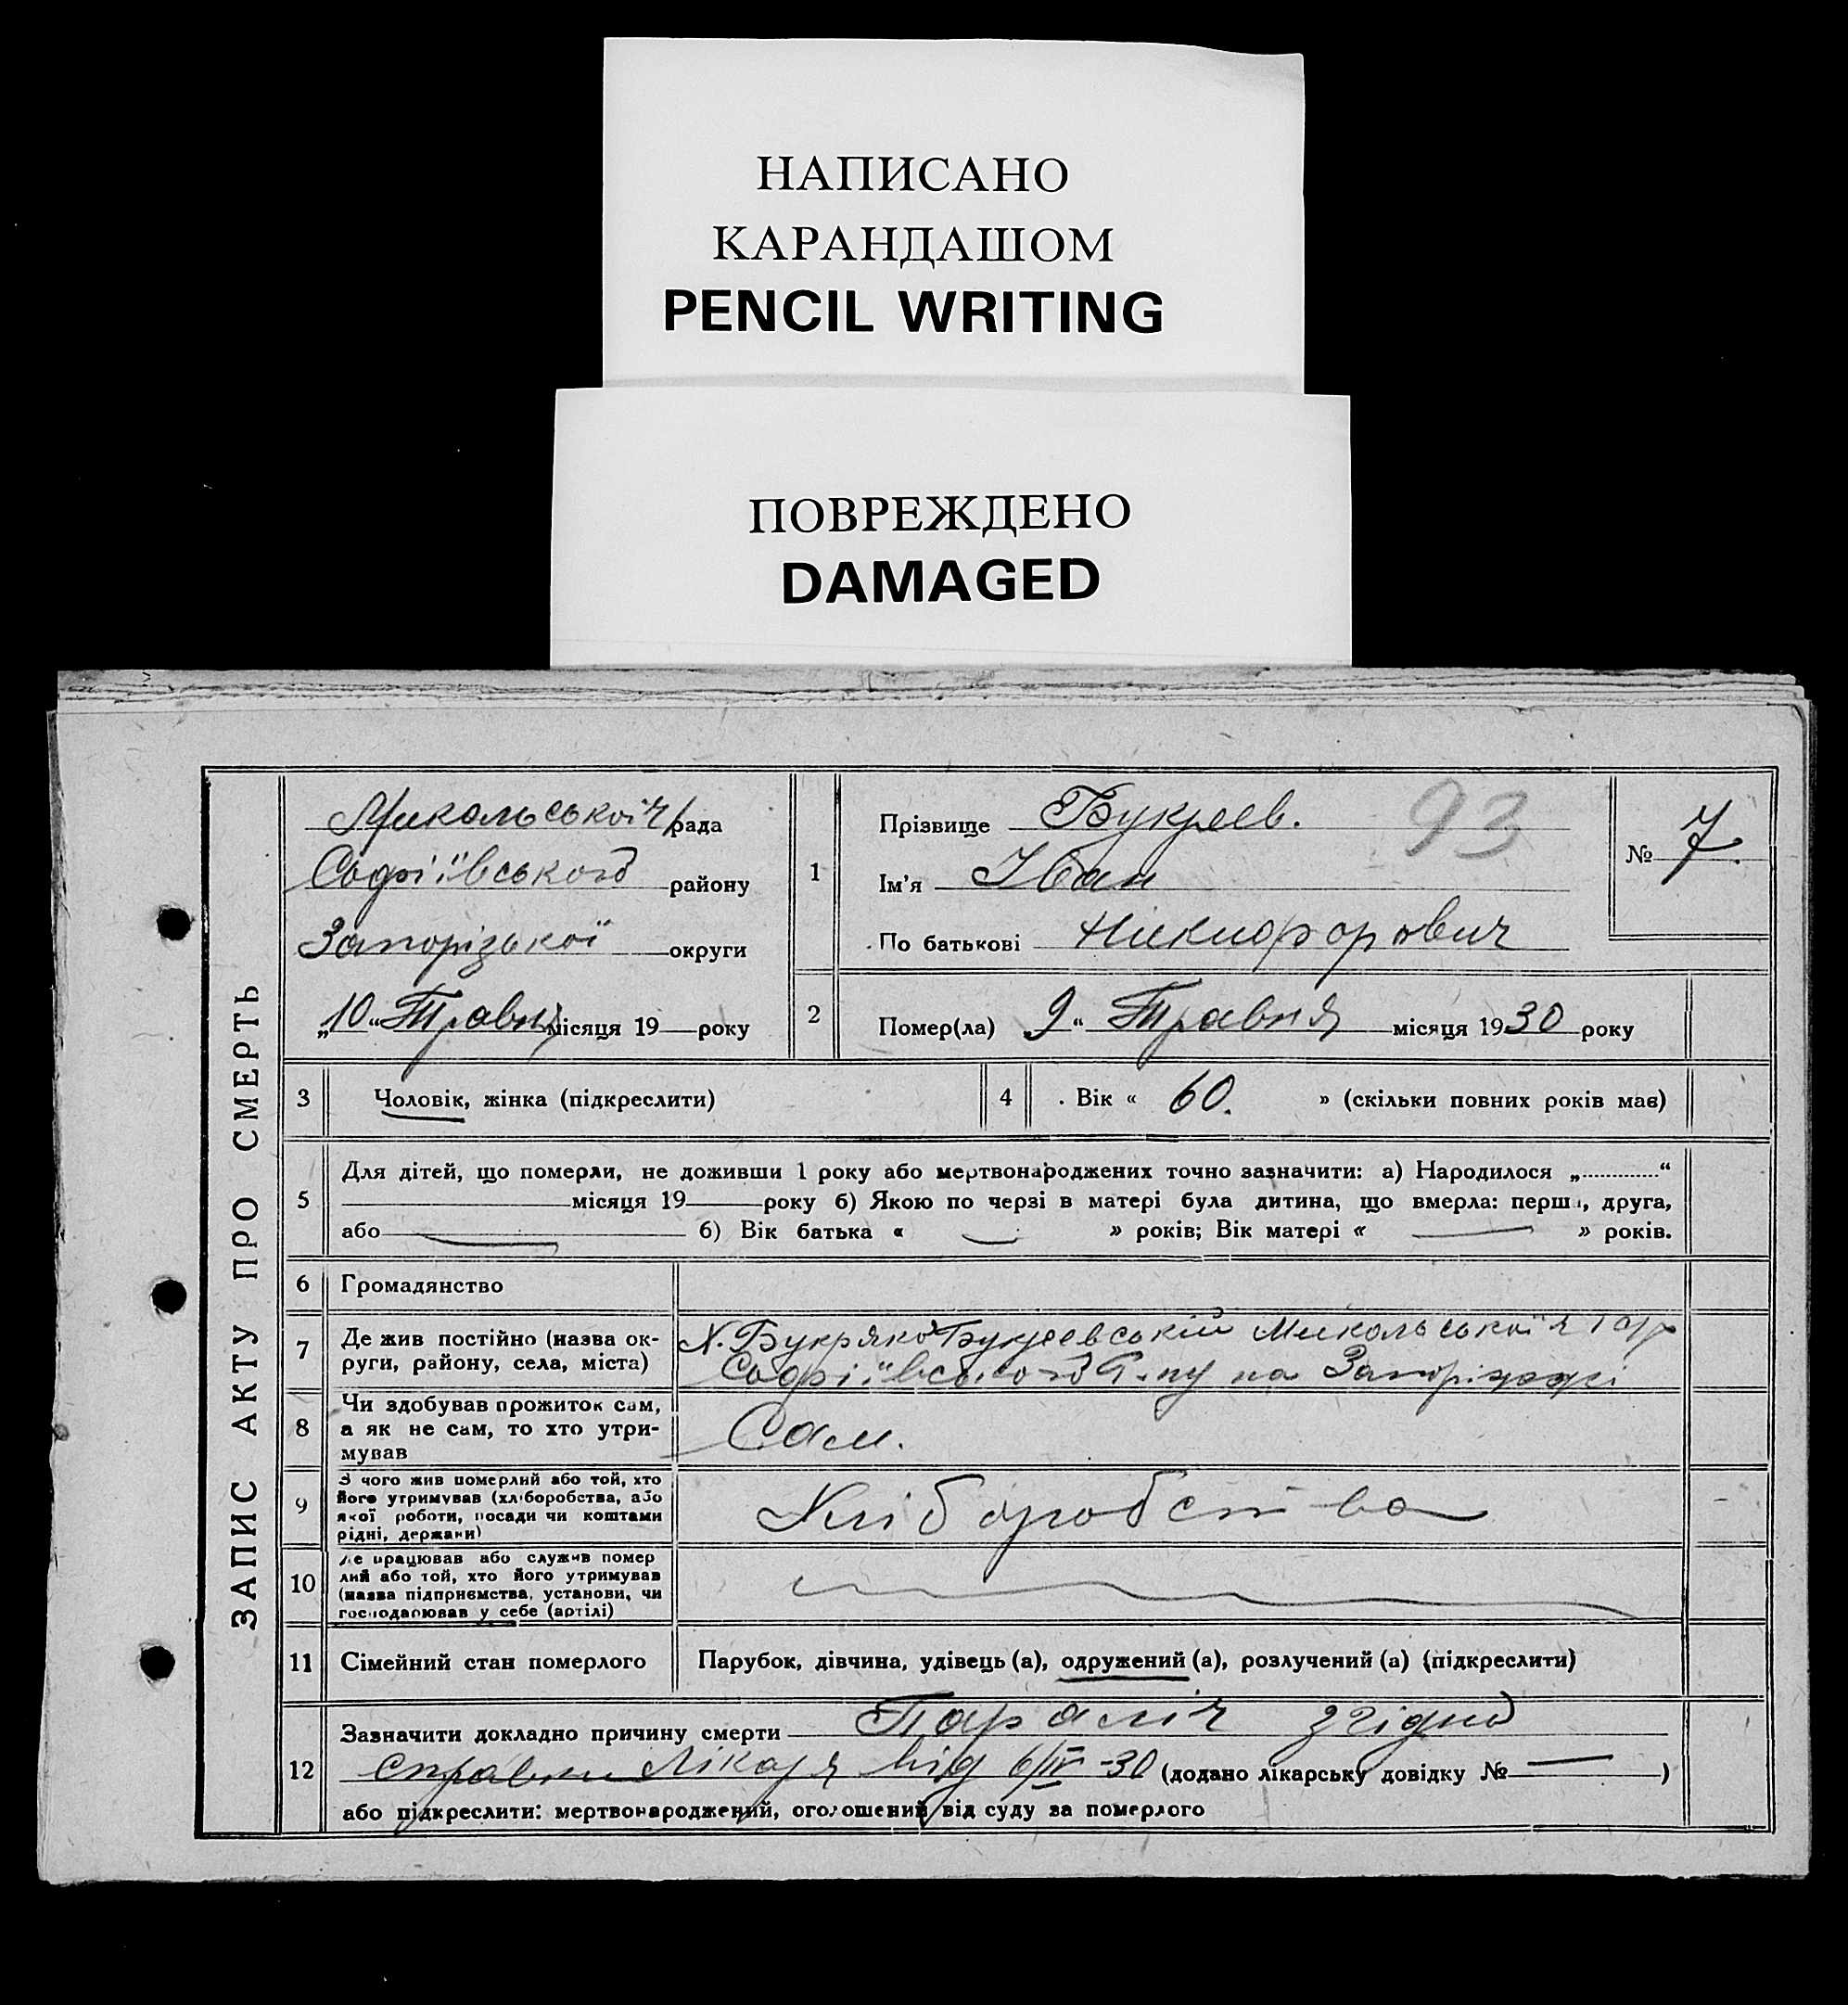 НАПИСАНО
КАРАНДАШОМ
PENCIL WRITING
ПОВРЕЖДЕНО
DAMAGED
ЗАПИС АКТУ ПРО СМЕРТЬ
Микольської с/рада
Софіївського району
Запорізької округи
„10“ Травня місяця 19 року
1
Прізвище Букреев.
93
Ім'я Іван
По батькові Никифорович
№ 7.
2
Помер(ла) 9 “ Травня місяця 1930 року
3 Чоловік, жінка (підкреслити)
4 Вік « 60. » (скільки повних років має)
5 Для дітей, що померли, не доживши 1 року або мертвонароджених точно зазначити: а) Народилося „ “
місяця 19 року б) Якою по черзі в матері була дитина, що вмерла: перша, друга,
або б) Вік батька « » років; Вік матері « » років.
6 Громадянство
7 Де жив постійно (назва округи, району, села, міста)
Х. Букреевський Микольської
Софіївського Р-ну на Запоріжжі
8 Чи здобував прожиток сам,
а як не сам, то хто утримував
Сам.
9 З чого жив померлий або той, хто
його утримував (хліборобства, або
якої роботи, посади чи коштами
рідні, держави)
Хліборобства
10 Де працював або служив помер
лий або той, хто його утримував
(назва підприємства, установи, чи
господарював у себе (артілі)
11 Сімейний стан померлого
Парубок, дівчина, удівець (а), одружений (а), розлучений (а) (підкреслити)
12 Зазначити докладно причину смерти Параліч згідно
справки Лікаря від 6/IV-30 (додано лікарську довідку № — )
або підкреслити: мертвонароджений, оголошений від суду за померлого